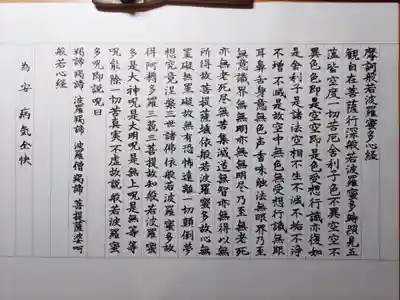 摩訶般若波羅蜜多心経
観自在菩薩行深般若波羅蜜多時照見五
蘊皆空度一切苦厄舎利子色不異空空不
異色色即是空空即是色受想行識亦復如
是舎利子是諸法空相不生不滅不垢不浄
不増不減是故空中無色無受想行識無眼
耳鼻舌身意無色声香味触法無眼界乃至
無意識界無無明亦無無明尽乃至無老死
亦無老死尽無苦集滅道無智亦無得以無
所得故菩提薩埵依般若波羅蜜多故心無
罣礙無罣礙故無有恐怖遠離一切顛倒夢
想究竟涅槃三世諸仏依般若波羅蜜多故
得阿耨多羅三藐三菩提故知般若波羅蜜
多是大神呪是大明呪是無上呪是無等等
呪能除一切苦真実不虚故説般若波羅蜜
多呪即説呪曰
羯諦羯諦 波羅羯諦 波羅僧羯諦 菩提薩婆訶
般若心経
為 安 病気全快